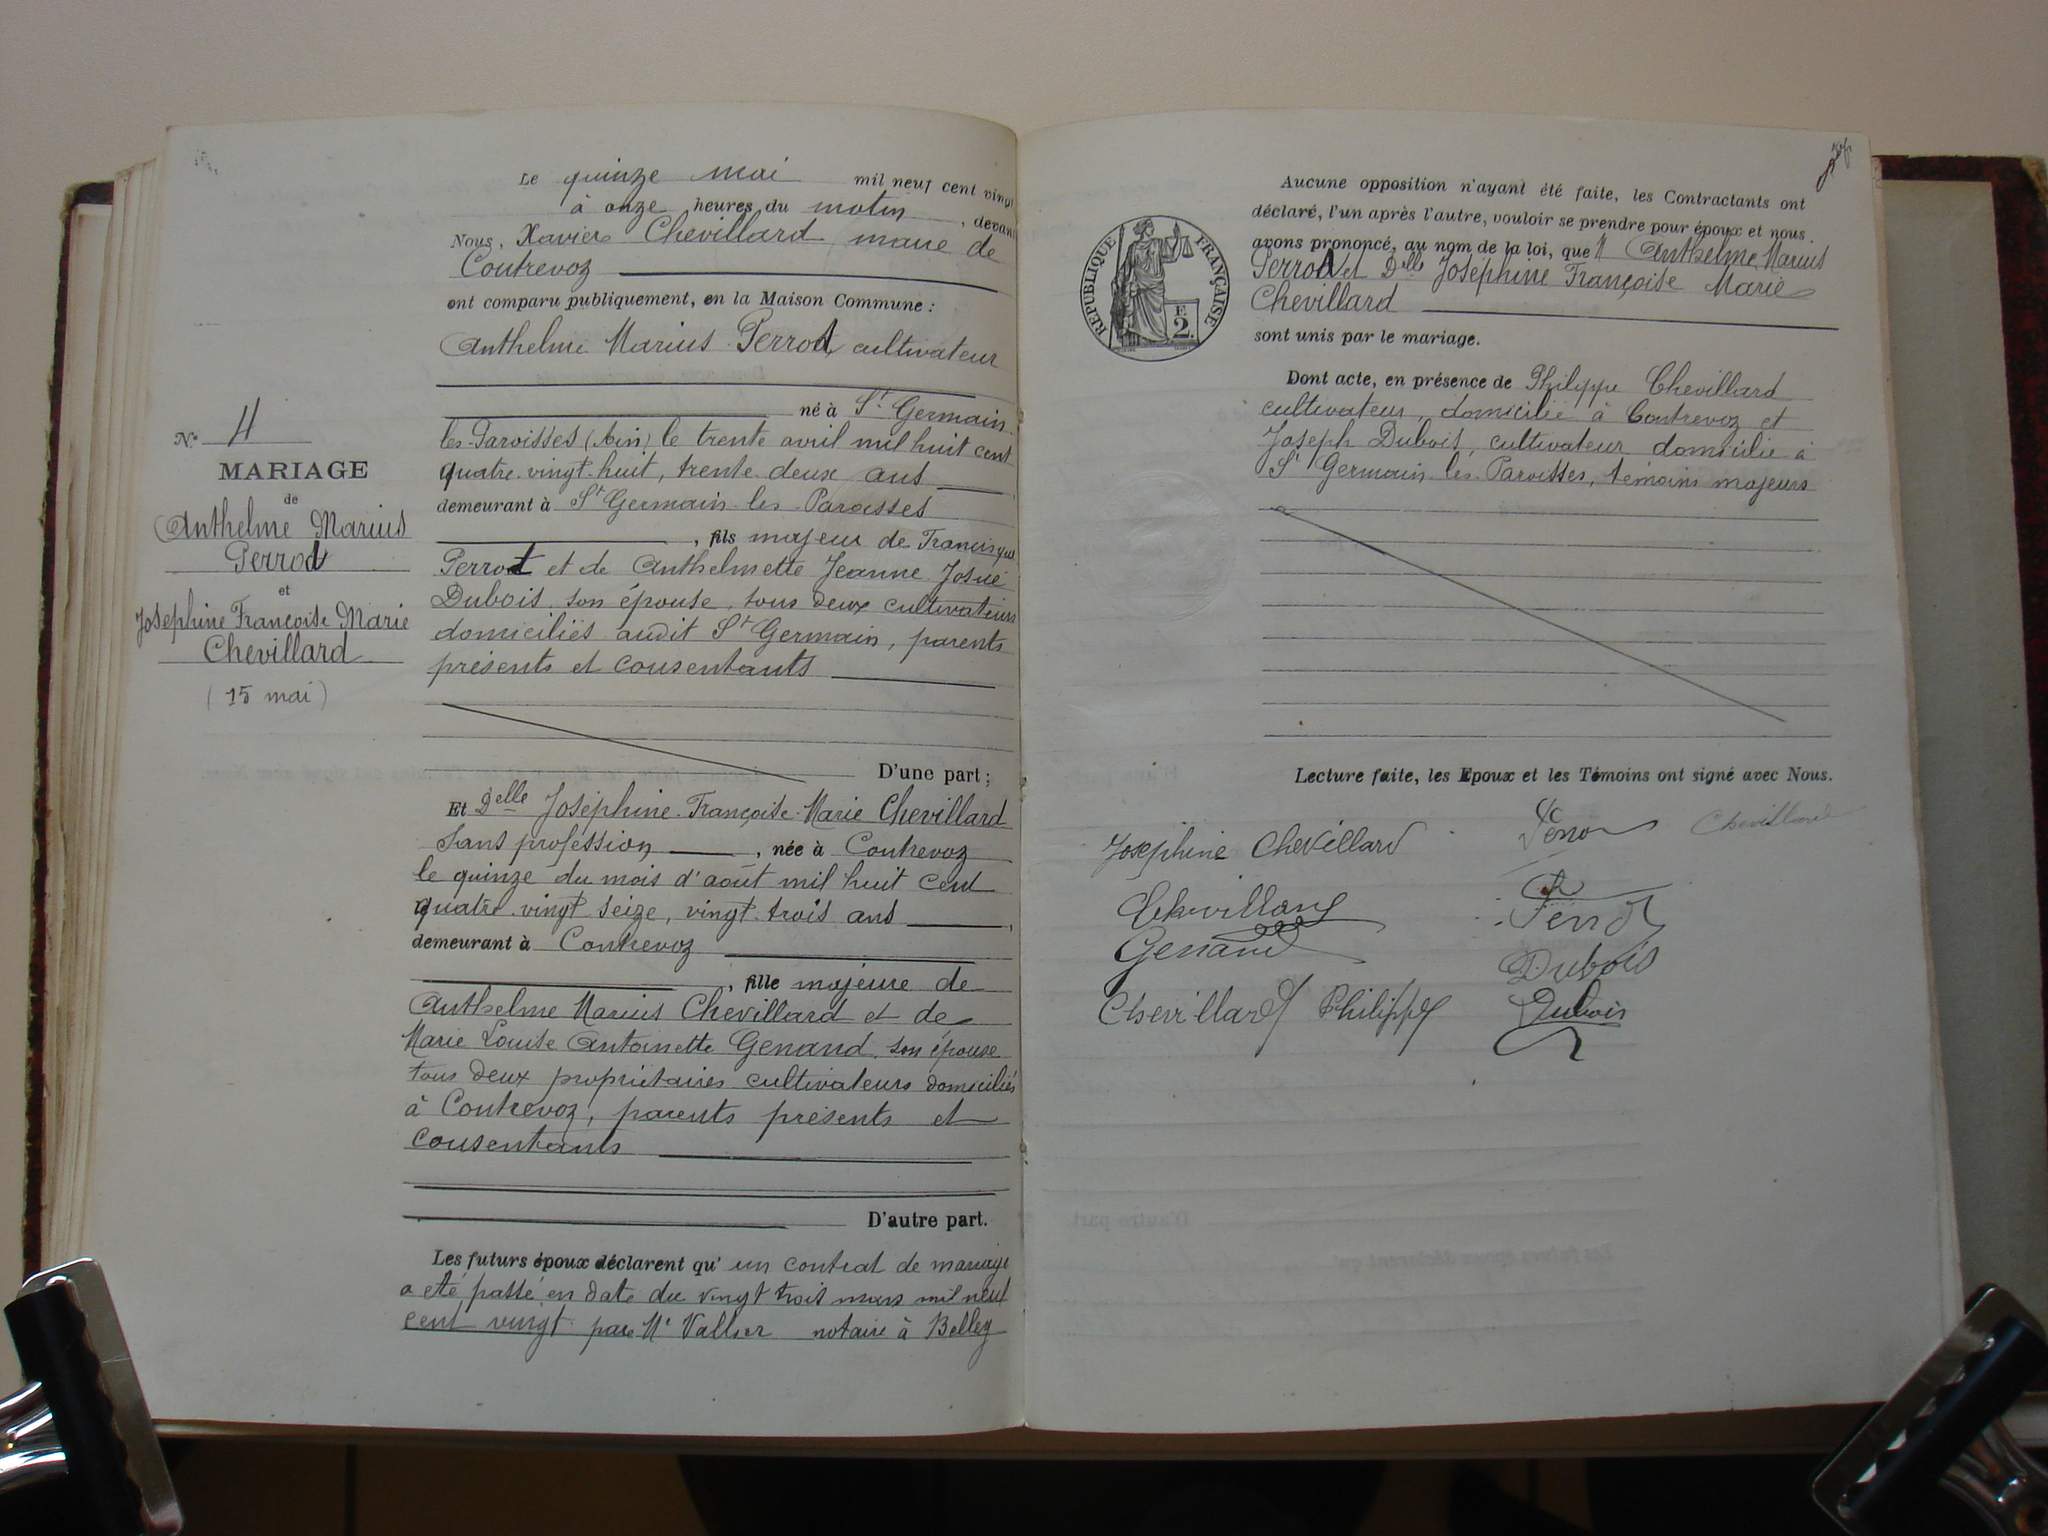 Le quinze mai mil neuf cent vingt
à onze heures du matin, devant
Nous, Xavier Chevillard maire de
Contrevoz
ont comparu publiquement, en la Maison Commune :
Anthelme Marius Perrot, cultivateur
né à St Germain
les-Paroisses (Ain) le trente avril mil huit cent
quatre-vingt-huit, trente-deux ans
demeurant à St Germain-les-Paroisses
, fils majeur de Francisque
Perrot et de Anthelmette Jeanne Josué
Dubois, son épouse, tous deux cultivateurs
domiciliés audit St Germain, parents
présents et consentants
D'une part ;
Et Delle Joséphine-Françoise-Marie Chevillard
sans profession, née à Contrevoz
le quinze du mois d'août mil huit cent
quatre-vingt-seize, vingt-trois ans
demeurant à Contrevoz
, fille majeure de
Anthelme Marius Chevillard et de
Marie Louise Antoinette Genand, son épouse
tous deux propriétaires cultivateurs domiciliés
à Contrevoz, parents présents et
consentants
D'autre part.
Les futurs époux déclarent qu'un contrat de mariage
a été passé en date du vingt trois mars mil neuf
cent vingt par Me Vallier notaire à Belley
N° 4
MARIAGE
de
Anthelme Marius
Perrot
et
Joséphine Françoise Marie
Chevillard
(15 mai)
RÉPUBLIQUE FRANÇAISE
F.
2.
Aucune opposition n'ayant été faite, les Contractants ont
déclaré, l'un après l'autre, vouloir se prendre pour époux et nous
avons prononcé, au nom de la loi, que M Anthelme Marius
Perrot et Delle Joséphine Françoise Marie
Chevillard
sont unis par le mariage.
Dont acte, en présence de Philippe Chevillard
cultivateur, domicilié à Contrevoz et
Joseph Dubois, cultivateur domicilié à
St Germain-les-Paroisses, témoins majeurs
Lecture faite, les Epoux et les Témoins ont signé avec Nous.
Joséphine Chevillard
Chevillard
Genand
Chevillard Philippe
Perrot
Chevillard
Perrot
Dubois
Dubois